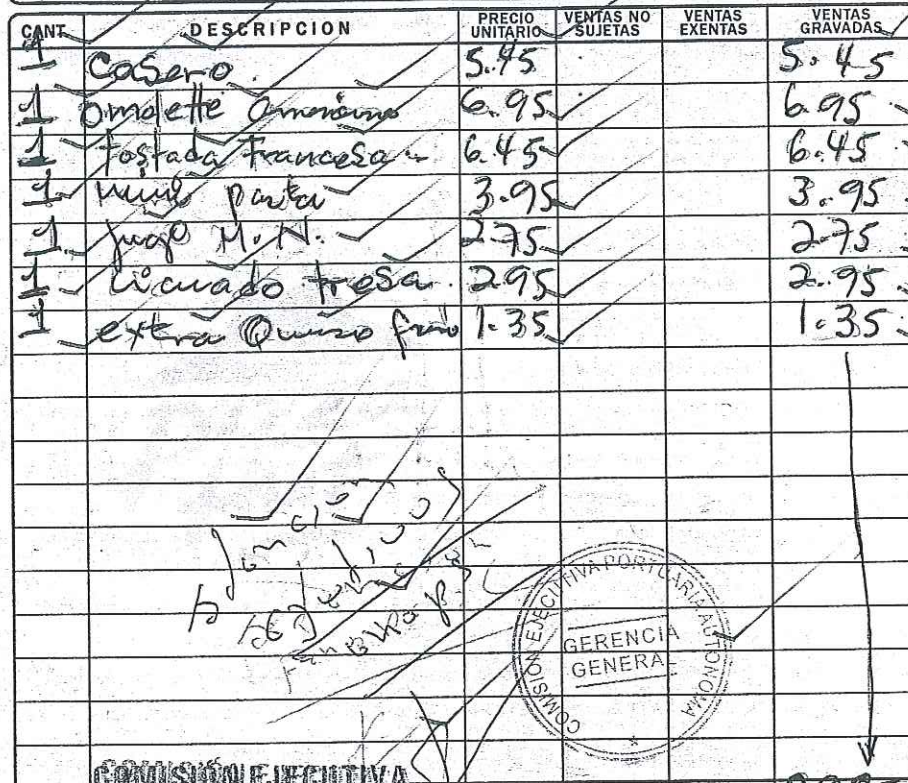 CANT. DESCRIPCION PRECIO UNITARIO VENTAS NO SUJETAS VENTAS EXENTAS VENTAS GRAVADAS
1 Casero. 5.45 5.45
1 omelette 6.95 6.95
1 tostada Francesa 6.45 6.45
1 3.95 3.95
1 jugo M.N. 2.75 2.75
1 licuado fresa. 2.95 2.95
1 extra Queso 1.35 1.35
COMISIÓN EJECUTIVA PORTUARIA AUTONOMA
GERENCIA
GENERAL
COMISIÓN EJECUTIVA